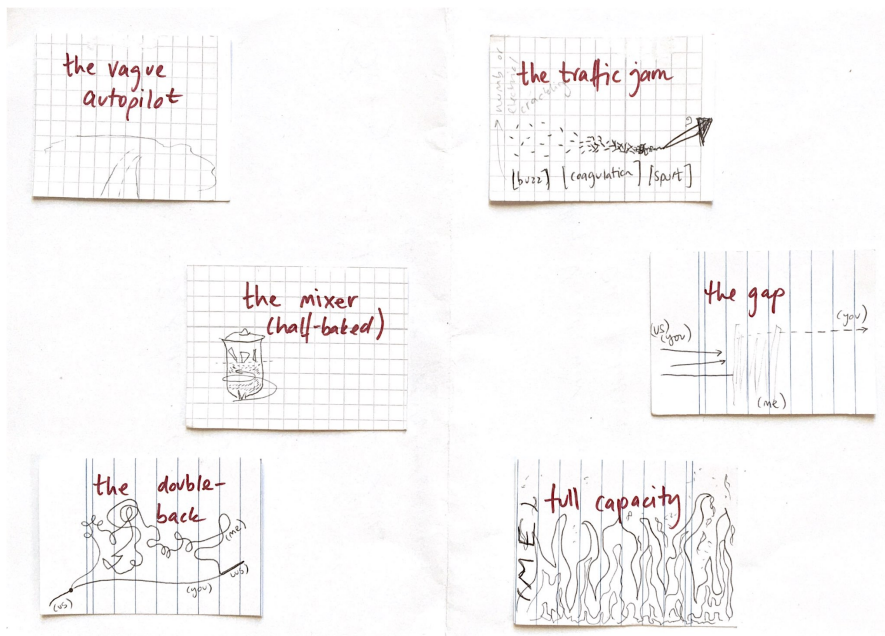 the vague
autopilot
the traffic jam
crackling
[buzz] [coagulation] [spurt]
the mixer
(half-baked)
the gap
(us)
(you)
(you)
(me)
the double-
back
(me)
(us)
(you)
(us)
full capacity